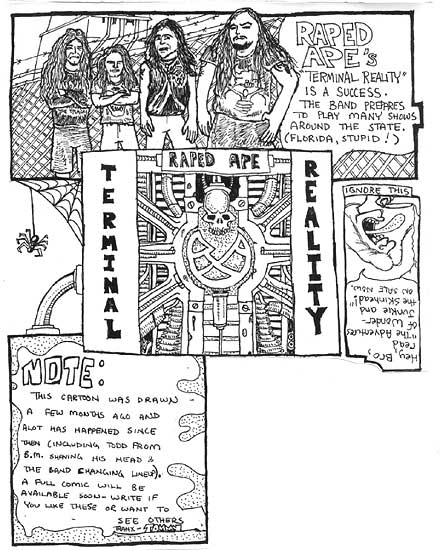 RAPED
APE's
"TERMINAL REALITY"
IS A SUCCESS.
THE BAND PREPARES
TO PLAY MANY SHOWS
AROUND THE STATE.
(FLORIDA, STUPID!)
RAPED APE
TERMINAL
REALITY
IGNORE THIS
Hey, Bro,
read
"The Adventures
of Wonder-
Junkie and
the Skinhead"
ON SALE NOW.
NOTE:
THIS CARTOON WAS DRAWN
A FEW MONTHS AGO AND
ALOT HAS HAPPENED SINCE
THEN (INCLUDING TODD FROM
B.M. SHAVING HIS HEAD &
THE BAND CHANGING LINEUP).
A FULL COMIC WILL BE
AVAILABLE SOON - WRITE IF
YOU LIKE THESE OR WANT TO
SEE OTHERS
THANX -